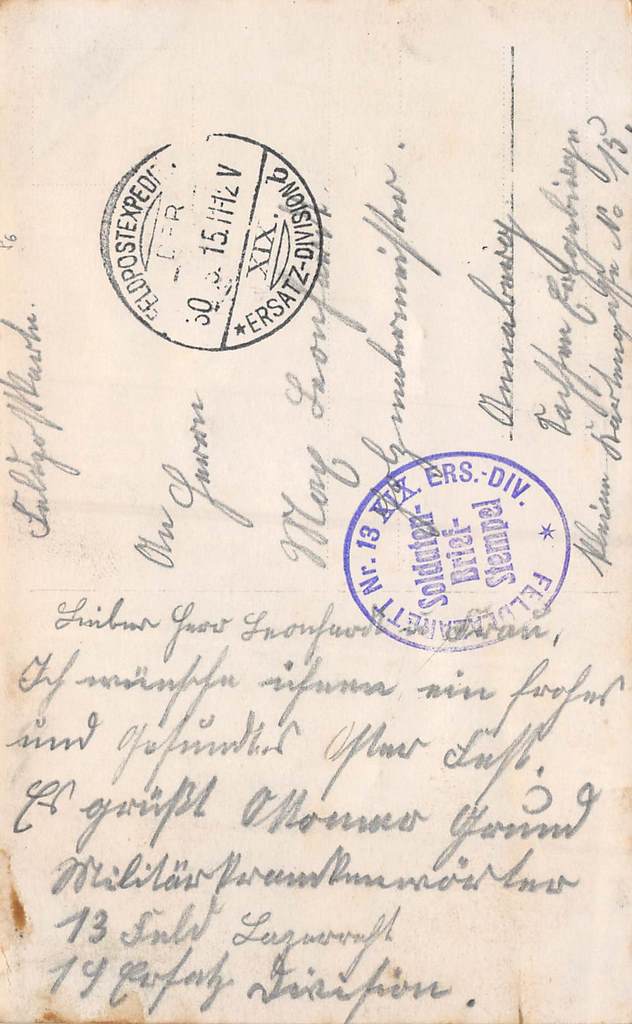 Feldpostkarte.
FELDPOSTEXPEDI
DER
30 3 15. 11-12 V
XIX. b
* ERSATZ-DIVISION
An
Herrn
Max Leonhardt
Schneidermeister.
Annaberg
Sachsen Erzgebirge
Kleine Kartengasse No 15.
FELDLAZARETT Nr. 13 XIX. ERS.-DIV.
Soldaten-
Brief-
Stempel
Lieber Herr Leonhardt u. Frau,
Ich wünsche ihnen ein frohes
und gesundtes Oster Fest.
Es grüßt Ottomar Grund
Militärkrankenwärter
13 Feld Lazarreht
19 Ersatz Division.